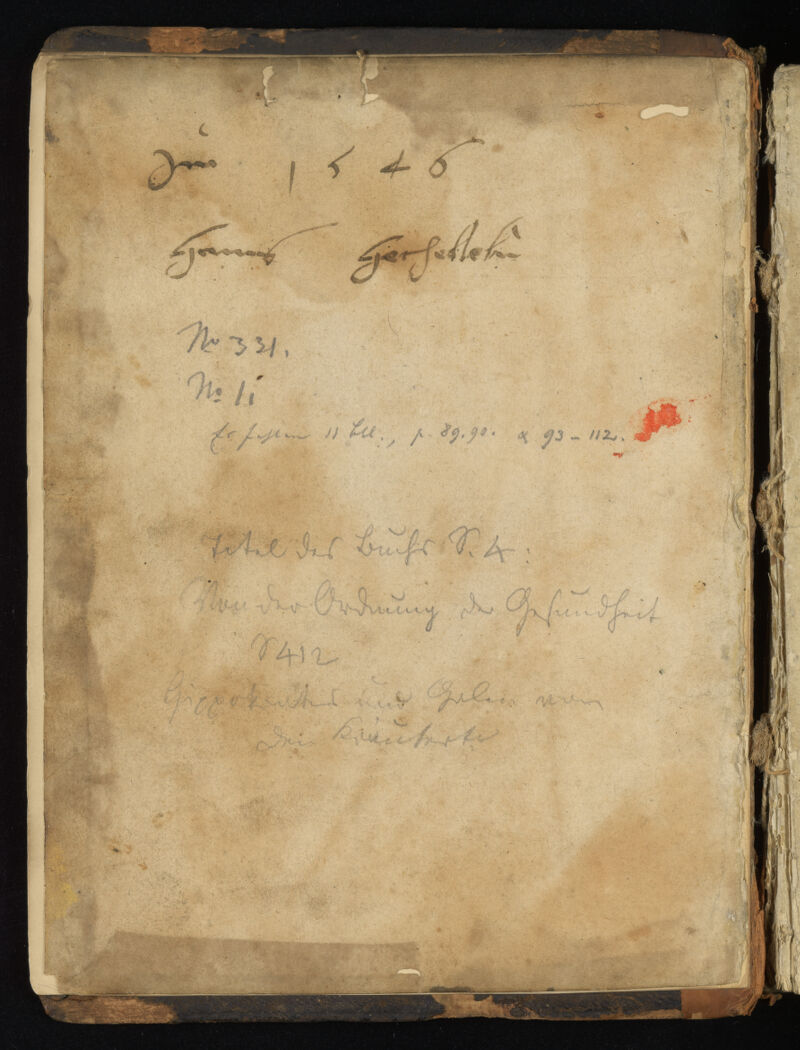 1546
Hanns
No 331.
No 11
Es fehlen 11 Bll., p. 89.90. & 93-112.
Titel des Buchs S. 4:
Von der Ordnung der Gesundheit
S 412
Hippokrates und Galen von
den Kräutern